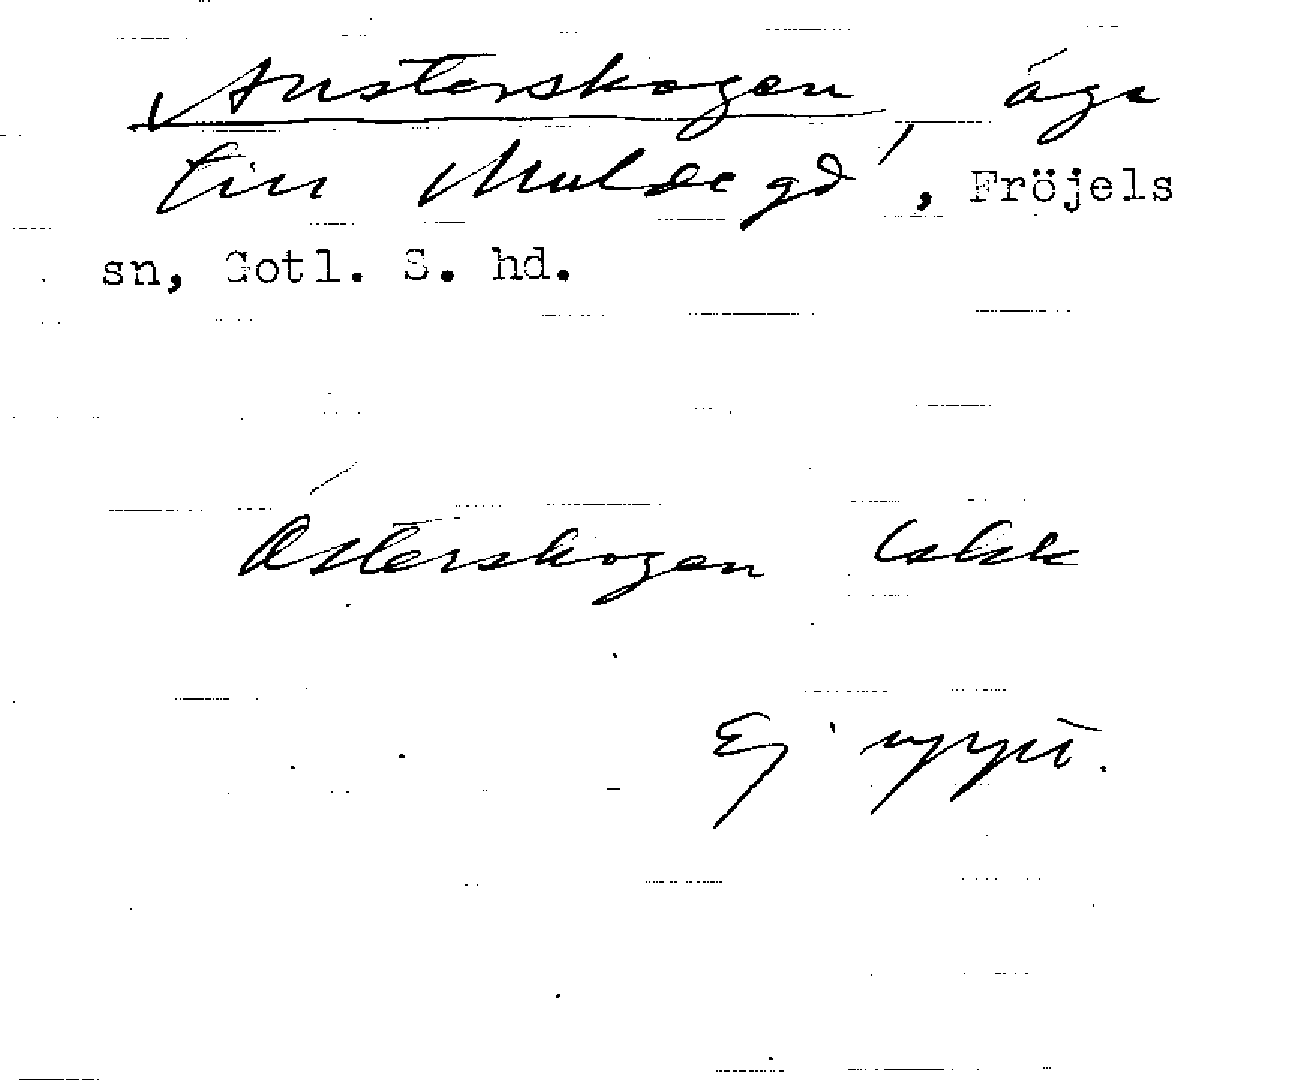 Austerskogen, äga
till Mulde gd, Fröjels
sn, Gotl. S. hd.
Österskogen
Ej uppt.